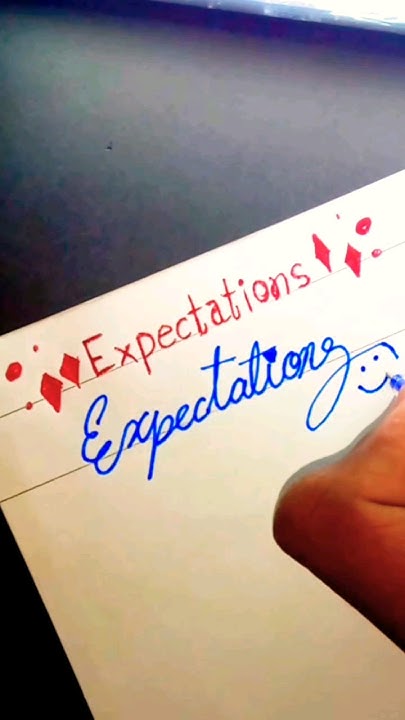 Expectations
Expectations